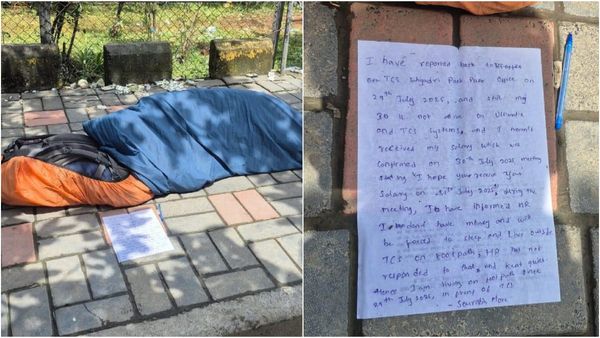 I have reported back to office
on TCS Sahyadri Park Pune Office on
29th July 2025, and still my
ID is not active on Ultimatix
and TCS systems, and I haven't
received my salary which was
confirmed on 30th July 2025 meeting
stating I'll hope you receive your
Salary on 31st July 2025, during the
meeting, I have informed HR
I don't have money and will
be forced to sleep and live outside
TCS on footpath, HR has not
responded to that and kept quiet
Hence I am living on footpath since
29th July 2025, in front of TCS
- Saurabh More